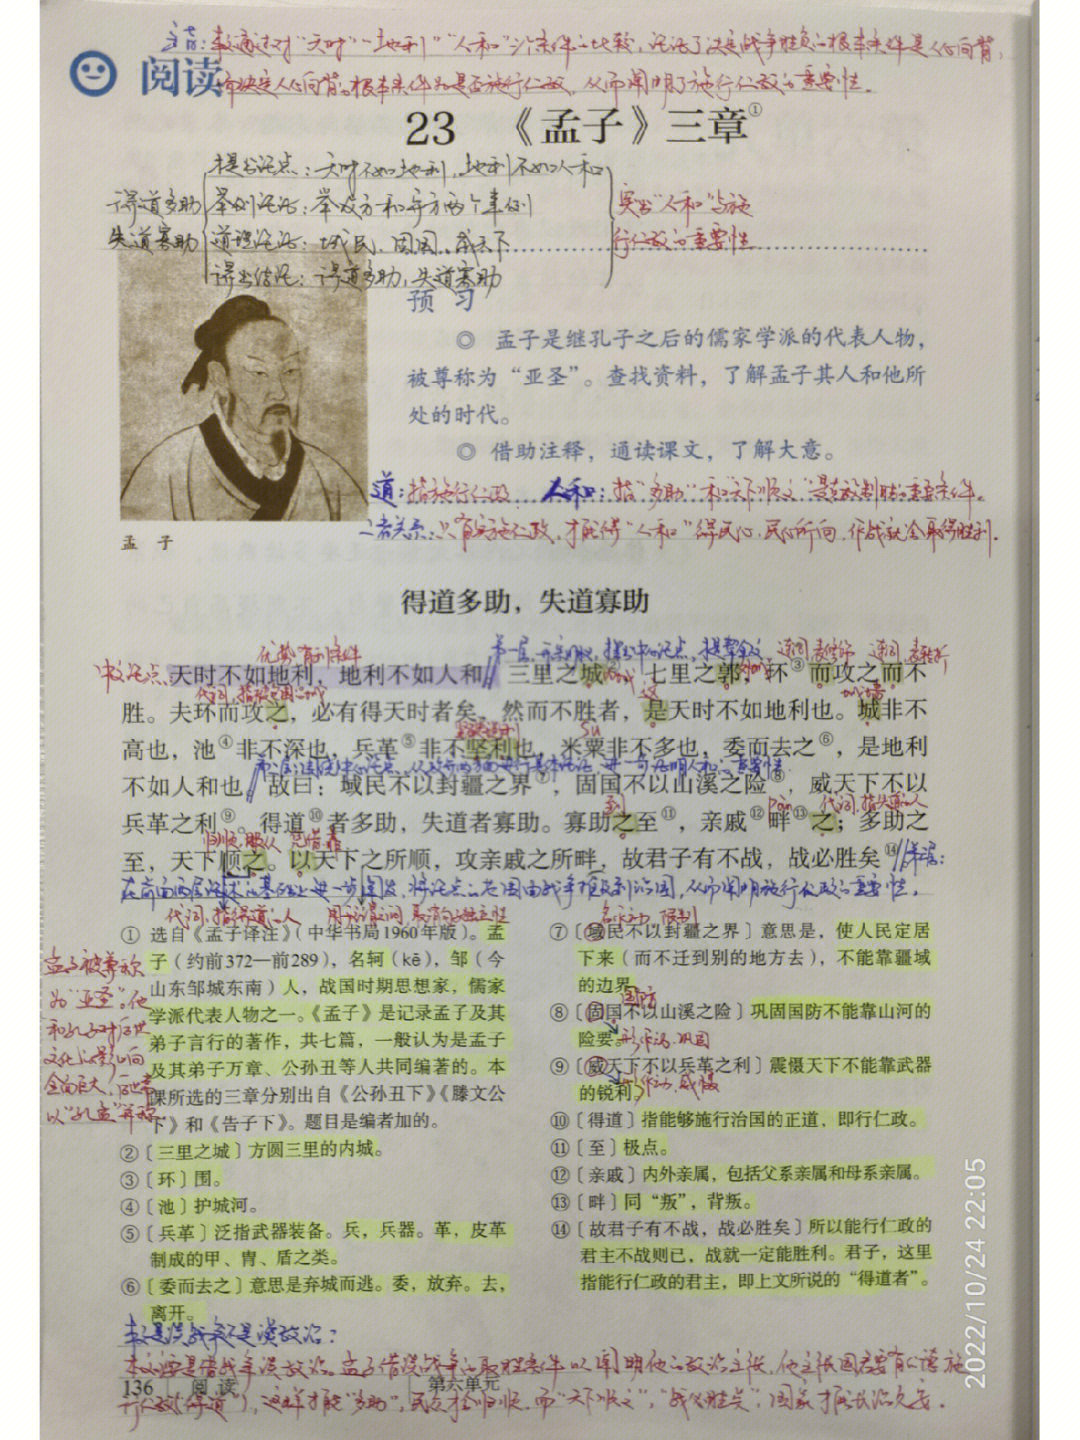 主旨：本文通过对“天时”“地利”“人和”三个条件的比较，论证了决定战争胜负的根本条件是人心向背，
而决定人心向背的根本条件则是否施行仁政，从而阐明了施行仁政的重要性。
阅读
23 《孟子》三章①
提出论点：天时不如地利，地利不如人和
得道多助 举例论证：举攻方和守方两个事例
突出“人和”与施
失道寡助 道理论证：域民、固国、威天下
行仁政的重要性
得出结论：得道多助，失道寡助
预 习
◎ 孟子是继孔子之后的儒家学派的代表人物，
被尊称为“亚圣”。查找资料，了解孟子其人和他所
处的时代。
◎ 借助注释，通读课文，了解大意。
道：指施行仁政 人和：指“多助”和“天下顺之”是克敌制胜的重要条件。
二者关系：只有实施仁政，才能得“人和”得民心，民心所向，作战就会取得胜利。
孟 子
得道多助，失道寡助
优势，有利条件
第一层：开宗明义，提出中心论点，提挈全文
连词，表修饰 连词，表转折
中心论点 天时不如地利，地利不如人和。三里之城②，七里之郭，环③而攻之而不
胜。夫环而攻之，必有得天时者矣，然而不胜者，是天时不如地利也。城非不
sù
高也，池④非不深也，兵革⑤非不坚利也，米粟非不多也，委而去之⑥，是地利
不如人和也。故曰：域民不以封疆之界⑦，固国不以山溪之险⑧，威天下不以
到 pàn
兵革之利⑨。得道⑩者多助，失道者寡助。寡助之至⑪，亲戚⑫畔⑬之；多助之
归顺，服从 凭借
至，天下顺之。以天下之所顺，攻亲戚之所畔，故君子有不战，战必胜矣⑭。
在前面两层论述的基础上进一步阐发，将论点的范围由战争推及到治国，从而阐明施行仁政的重要性。
代词，指得道的人
名作动，限制
① 选自《孟子译注》（中华书局1960年版）。孟
子（约前372—前289），名轲（kē），邹（今
山东邹城东南）人，战国时期思想家，儒家
学派代表人物之一。《孟子》是记录孟子及其
弟子言行的著作，共七篇，一般认为是孟子
及其弟子万章、公孙丑等人共同编著的。本
课所选的三章分别出自《公孙丑下》《滕文公
下》和《告子下》。题目是编者加的。
孟子被尊称
为“亚圣”。他
和孔子对后世
文化的影响
全面巨大，后世常
以“孔孟”并称
②〔三里之城〕方圆三里的内城。
③〔环〕围。
④〔池〕护城河。
⑤〔兵革〕泛指武器装备。兵，兵器。革，皮革
制成的甲、胄、盾之类。
⑥〔委而去之〕意思是弃城而逃。委，放弃。去，
离开。
⑦〔域民不以封疆之界〕意思是，使人民定居
下来（而不迁到别的地方去），不能靠疆域
的边界。
国防
⑧〔固国不以山溪之险〕巩固国防不能靠山河的
险要。
形作动，巩固
⑨〔威天下不以兵革之利〕震慑天下不能靠武器
的锐利。
形作动，威慑
⑩〔得道〕指能够施行治国的正道，即行仁政。
⑪〔至〕极点。
⑫〔亲戚〕内外亲属，包括父系亲属和母系亲属。
⑬〔畔〕同“叛”，背叛。
⑭〔故君子有不战，战必胜矣〕所以能行仁政的
君主不战则已，战就一定能胜利。君子，这里
指能行仁政的君主，即上文所说的“得道者”。
本文是谈战争还是谈政治？
本文主要是借战争谈政治。孟子借谈战争的取胜条件以阐明他的政治主张，他主张国君要有仁德，施
行仁政（得道），这样才能“多助”，民众才会归顺，而“天下顺之”，“战必胜矣”，国家才能长治久安。
136 阅 读 第六单元
2022/10/24 22:05